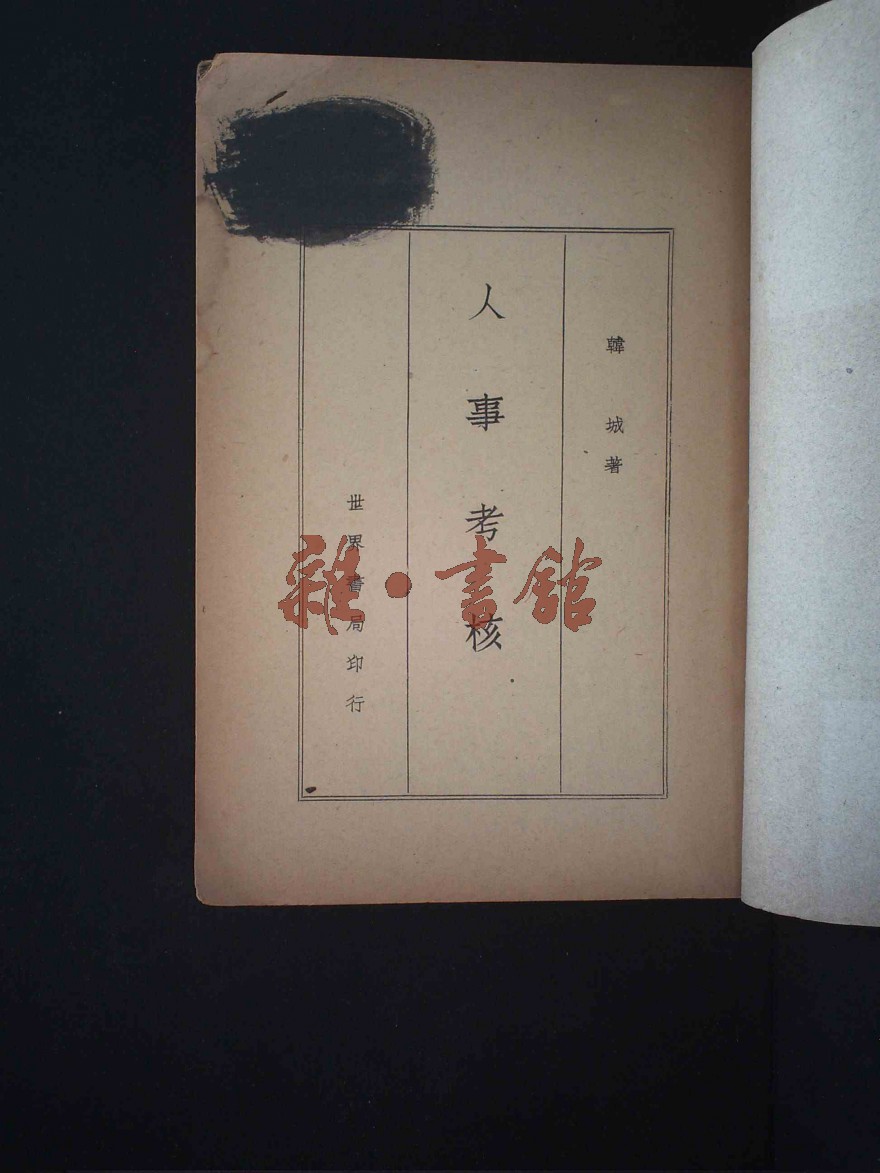 韓城著
人事考核
世界書局印行
雜·書館